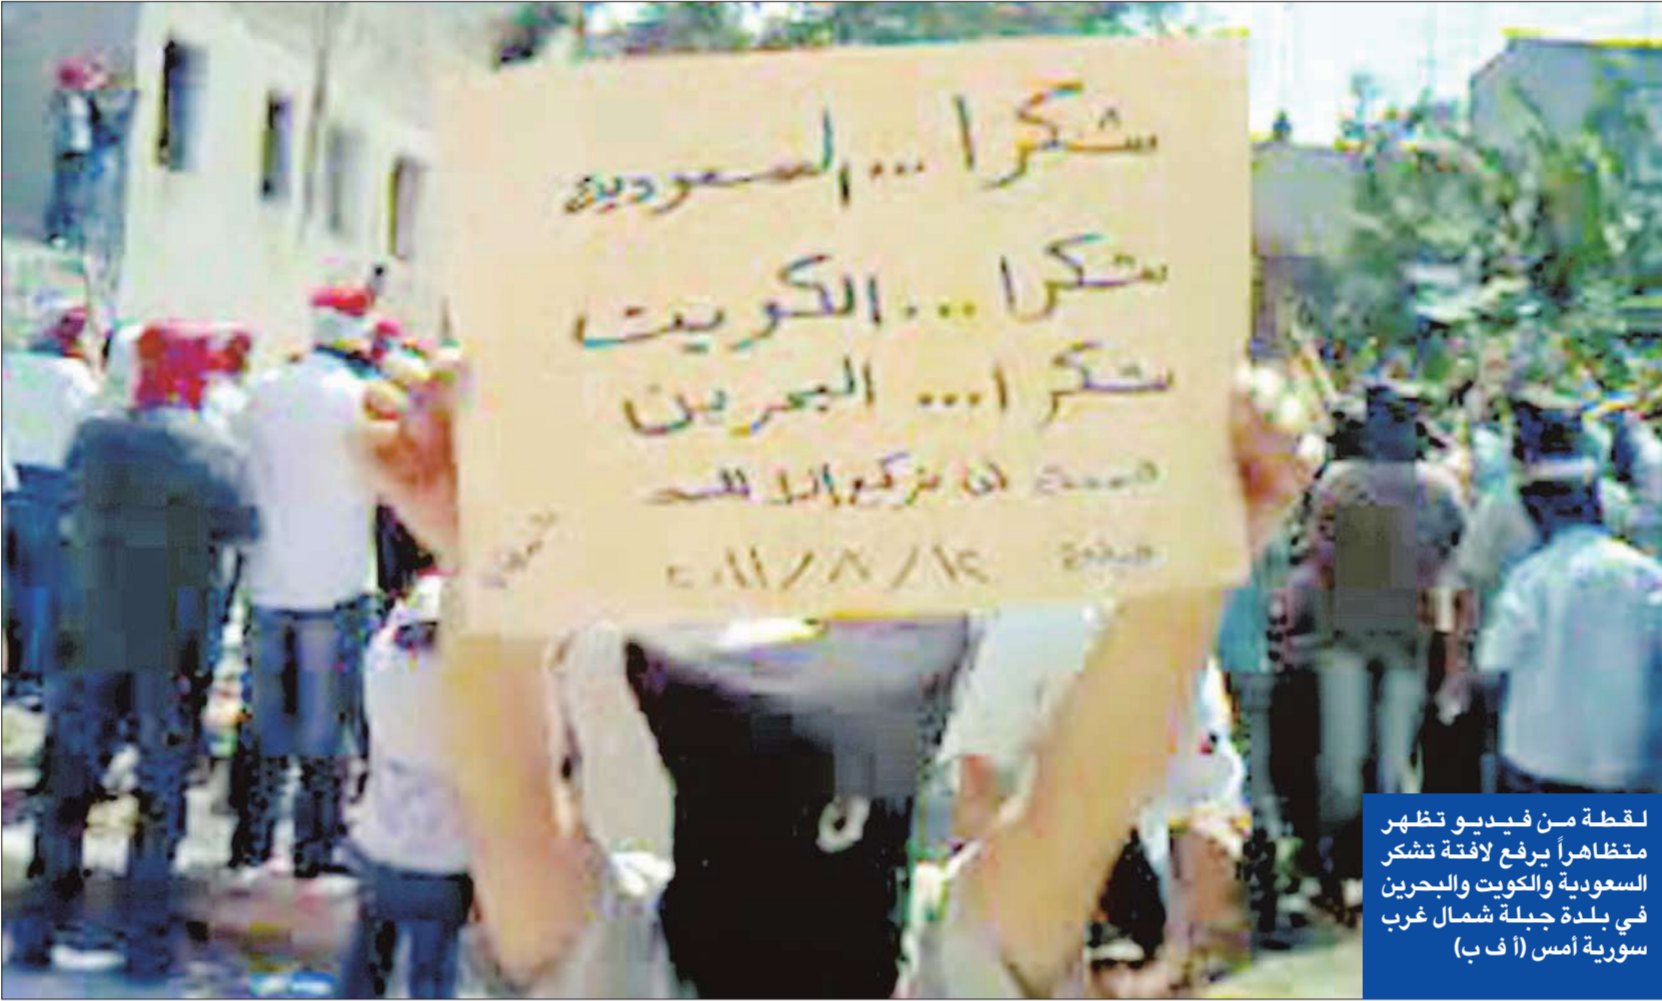 شكرا ... السعودية
شكرا ... الكويت
شكرا ... البحرين
لن نركع إلا لله
٢٠١١/٨/١٢
لقطة من فيديو تظهر
متظاهراً يرفع لافتة تشكر
السعودية والكويت والبحرين
في بلدة جبلة شمال غرب
سورية أمس (أ ف ب)